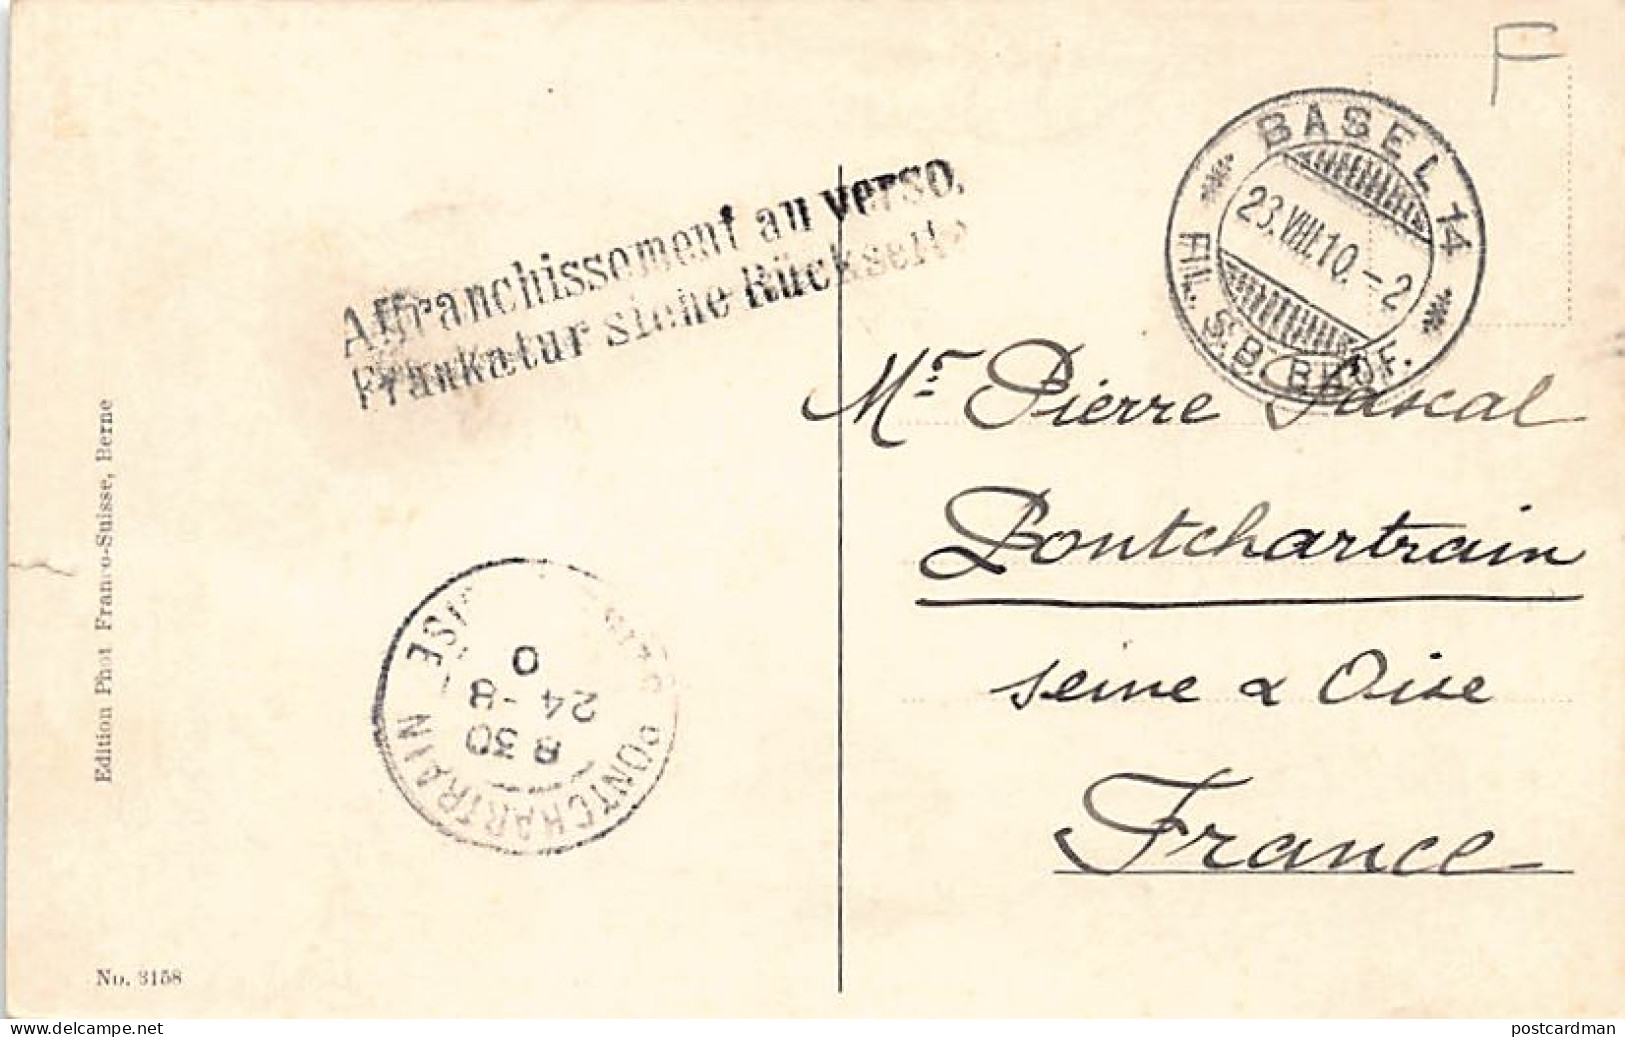 F
BASEL 14
23.VIII.10.-2
FIL. S.B. BHOF.
Affranchissement au verso.
Frankatur siehe Rückseite
Mr Pierre Pascal
Pontchartrain
Seine & Oise
France
PONTCHARTRAIN
8 30
24 -8
Edition Phot. Franco-Suisse, Berne
No. 3158
delcampe.net
postcardman